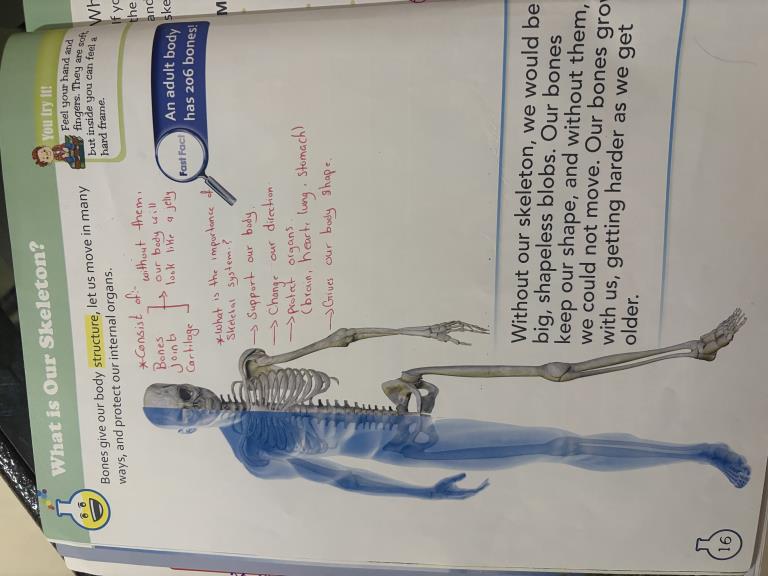 What is Our Skeleton?
Bones give our body structure, let us move in many
ways, and protect our internal organs.
You try it!
Feel your hand and
fingers. They are soft,
but inside you can feel a
hard frame.
*Consist of:-
Bones
Joints
Cartilage
without them,
our body will
look like a jelly
Fast Fact
An adult body
has 206 bones!
*What is the importance of
Skeletal system?
→ Support our body.
→ Change our direction.
→ protect organs.
(brain, heart, lung, stomach)
→ Gives our body shape.
Without our skeleton, we would be
big, shapeless blobs. Our bones
keep our shape, and without them,
we could not move. Our bones grow
with us, getting harder as we get
older.
16
Wh
If yo
the
and
ske
M